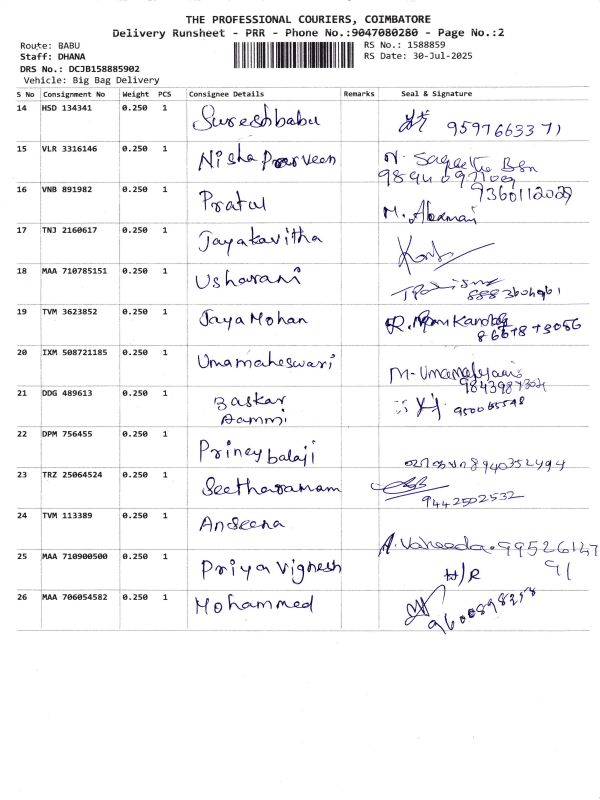 THE PROFESSIONAL COURIERS, COIMBATORE
Delivery Runsheet - PRR - Phone No.:9047080280 - Page No.:2
Route: BABU
RS No.: 1588859
Staff: DHANA
RS Date: 30-Jul-2025
DRS No.: DCJB158885902
Vehicle: Big Bag Delivery
S No Consignment No Weight PCS Consignee Details Remarks Seal & Signature
14 HSD 134341 0.250 1 Sureshbabu 9597663371
15 VLR 3316146 0.250 1 Nisha Parveen
16 VNB 891982 0.250 1 Pratul 7360112029
17 TNJ 2160617 0.250 1 Jayakavitha
18 MAA 710785151 0.250 1 Usharani
19 TVM 3623852 0.250 1 Jaya Mohan
20 IXM 508721185 0.250 1 Umamaheswari
21 DDG 489613 0.250 1 Baskar
22 DPM 756455 0.250 1 balaji 8940352494
23 TRZ 25064524 0.250 1 Seetharamam 9442502532
24 TVM 113389 0.250 1 Anseena
A. Vaheeda. 99526147
25 MAA 710900500 0.250 1 Priya Vignesh H/R 91
26 MAA 706054582 0.250 1 Mohammed